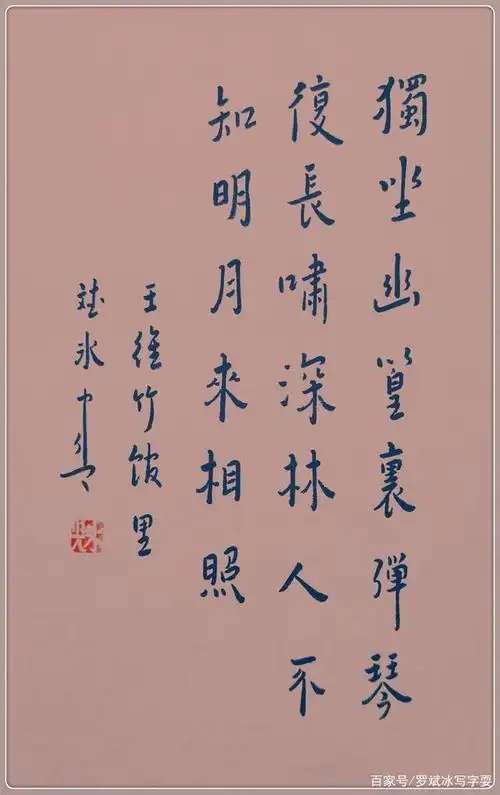 獨坐幽篁裏彈琴
復長嘯深林人不
知明月來相照
王維竹館里
斌冰
百家号/罗斌冰写字耍